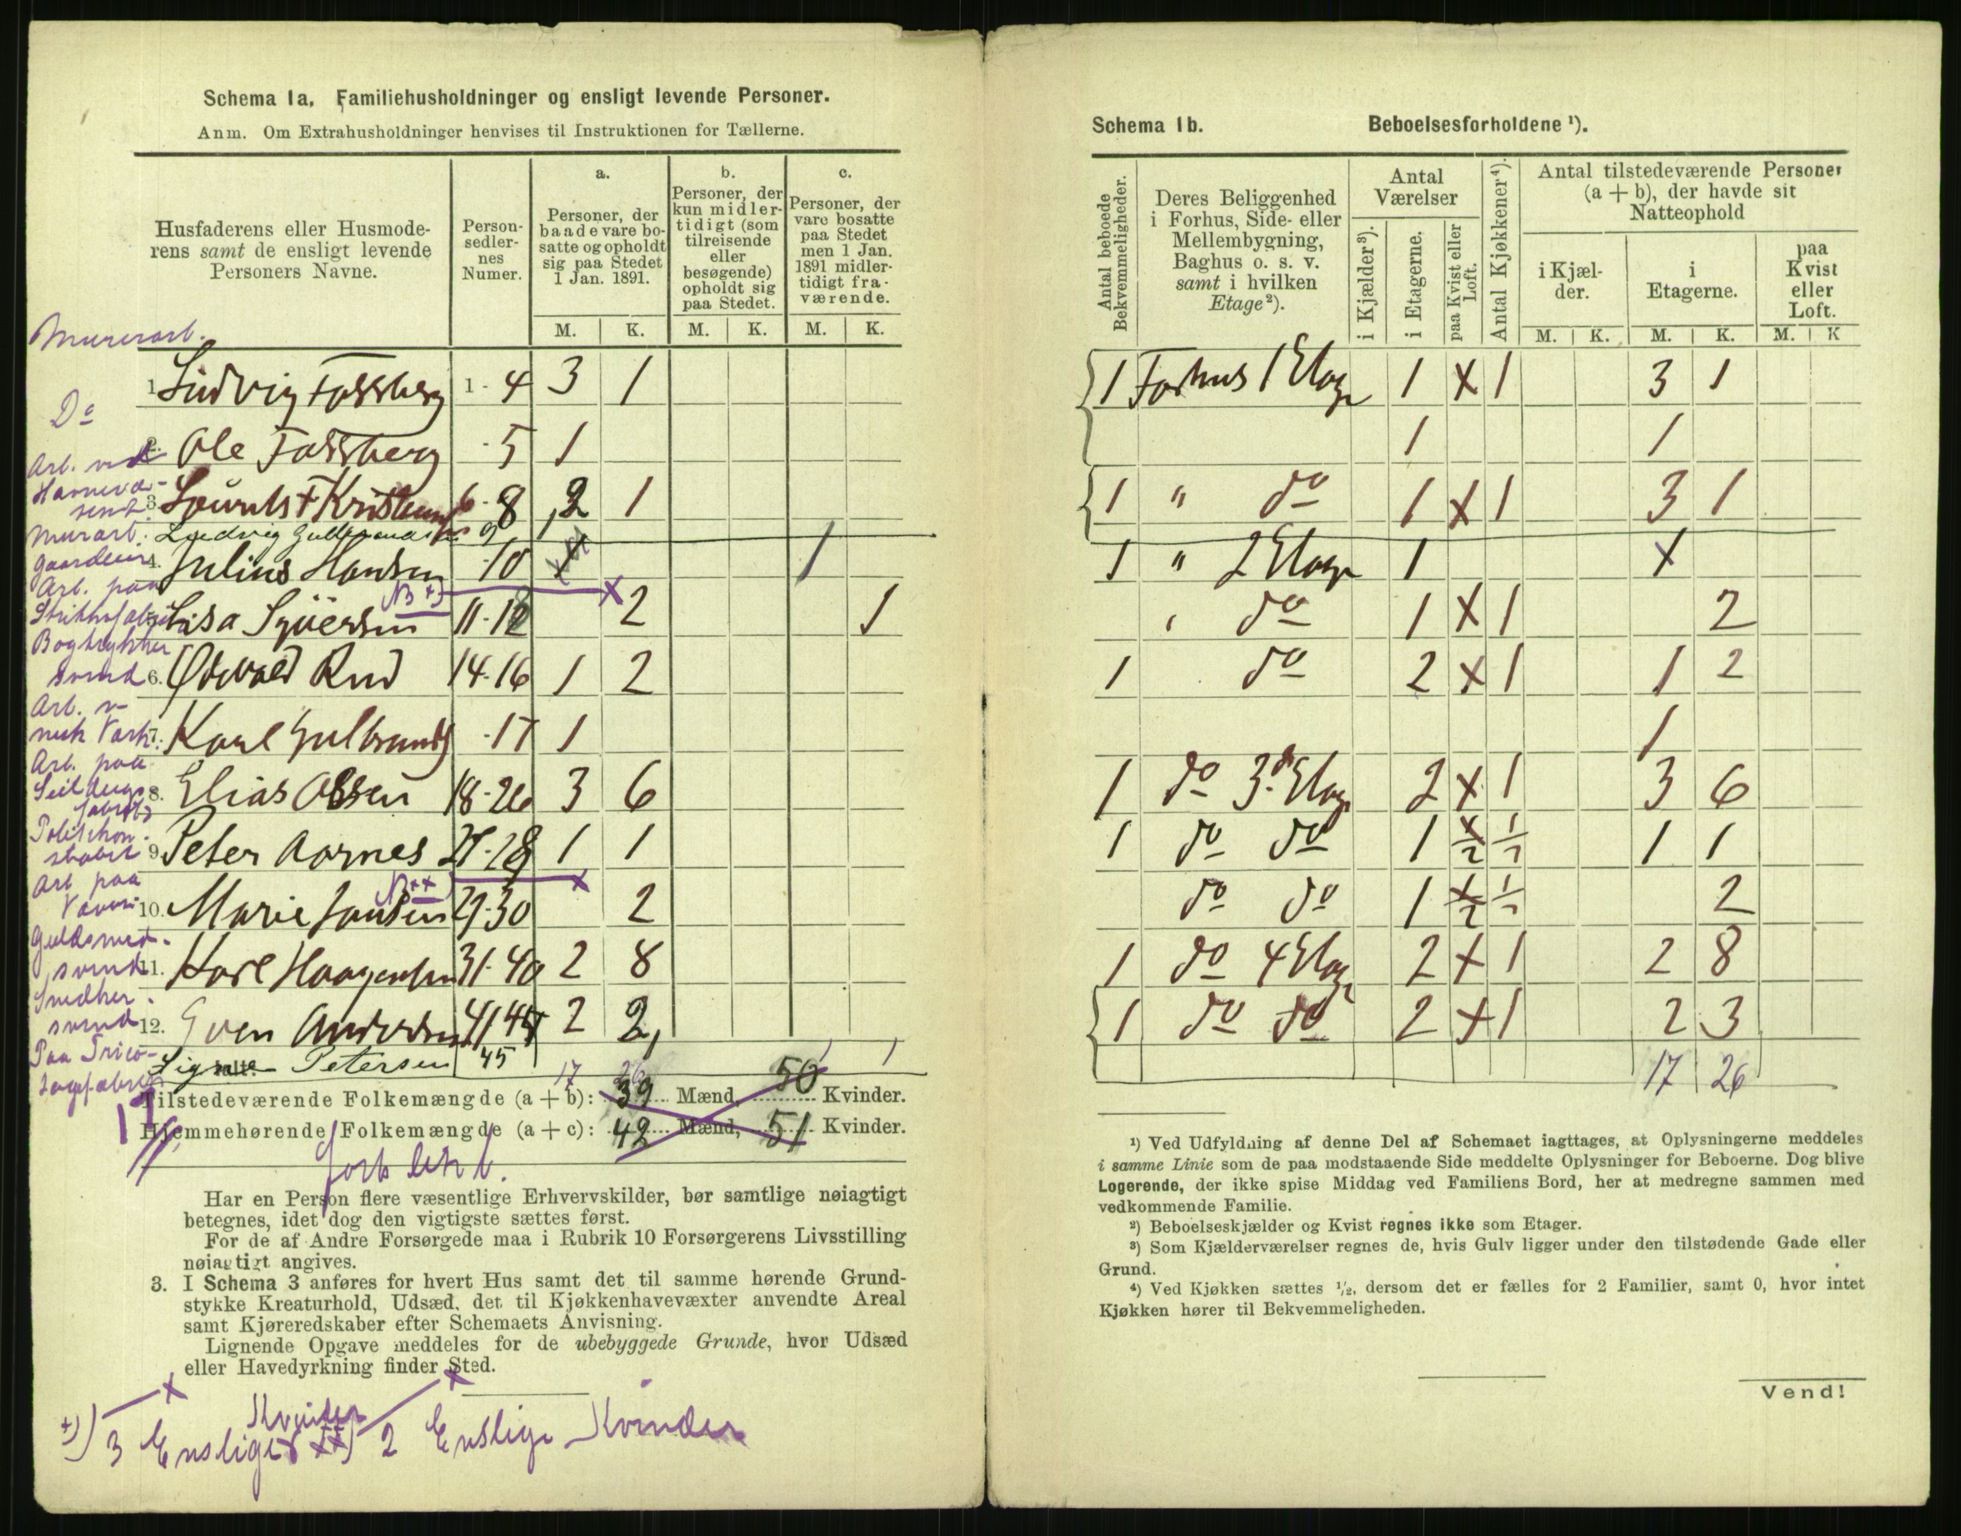 Schema 1a. Familiehusholdninger og ensligt levende Personer.
Anm. Om Extrahusholdninger henvises til Instruktionen for Tællerne.
Husfaderens eller Husmode-
rens samt de ensligt levende
Personers Navne.
Person-
sedler-
nes
Numer.
a.
Personer, der
baade vare bo-
satte og opholdt
sig paa Stedet
1 Jan. 1891.
b.
Personer, der
kun midler-
tidigt (som
tilreisende
eller
besøgende)
opholdt sig
paa Stedet.
c.
Personer, der
vare bosatte
paa Stedet
men 1 Jan.
1891 midler-
tidigt fra-
værende.
M. K. M. K. M. K.
Murerarb.
1. Ludvig Fossberg 1-4 3 1
Do
2. Ole Fossberg -5 1
Arb. ved
Havnevæ-
senet
3. Lauritz Kristensen 6-8 2 1
Murarb. Ludvig 9
4. Julius Hansen -10 1
Arb. paa
NB +)
5. Lisa Syversen 11-12 2 1
Bogtrykker
svend 6. Osvald Rud 14-16 1 2
Arb. v
mek Værk. 7. Karl Gulbrands -17 1
Arb. paa
Seildugs
fabrik
8. Elias Olsen 18-26 3 6
Politikon-
stabel 9. Peter Aarnes 27-28 1 1
Arb paa
Væveri
NB ++)
10. Marie Jansen 29-30 2
Guldsmed-
svend 11. Karl Haagensen 31-40 2 8
Snedker-
svend 12. Sven Andersen 41-45 2 2
Paa Trico-
Signe Petersen 45
Ialt: 17 26 1 1
Tilstedeværende Folkemængde (a + b): 39 Mænd, 50 Kvinder.
Hjemmehørende Folkemængde (a + c): 42 Mænd, 51 Kvinder.
Har en Person flere væsentlige Erhvervskilder, bør samtlige nøiagtigt
betegnes, idet dog den vigtigste sættes først.
For de af Andre Forsørgede maa i Rubrik 10 Forsørgerens Livsstilling
nøiagtigt angives.
3. I Schema 3 anføres for hvert Hus samt det til samme hørende Grund-
stykke Kreaturhold, Udsæd, det til Kjøkkenhavevæxter anvendte Areal
samt Kjøreredskaber efter Schemaets Anvisning.
Lignende Opgave meddeles for de ubebyggede Grunde, hvor Udsæd
eller Havedyrkning finder Sted.
Kvinder
+) 3 Enslige ++) 2 Enslige Kvinder
Schema 1b. Beboelsesforholdene ¹).
Antal beboede
Bekvemmeligheder.
Deres Beliggenhed
i Forhus, Side- eller
Mellembygning,
Baghus o. s. v.
samt i hvilken
Etage ²).
Antal
Værelser
i Kjælder ³).
i Etagerne.
paa Kvist eller
Loft.
Antal Kjøkkener ⁴).
Antal tilstedeværende Personer
(a + b), der havde sit
Natteophold
i Kjæl-
der.
i
Etagerne.
paa
Kvist
eller
Loft.
M. K. M. K. M. K
1 Forhus 1 Etage 1 x 1 3 1
1 1
1 " do 1 x 1 3 1
1 " 2 Etage 1 x
" do 1 x 1 2
1 do 2 x 1 1 2
1
1 do 3d Etage 2 x 1 3 6
1 do do 1 x/2 1/2 1 1
do do 1 x/2 1/2 2
1 do 4 Etage 2 x 1 2 8
1 do do 2 x 1 2 3
17 26
¹) Ved Udfyldning af denne Del af Schemaet iagttages, at Oplysningerne meddeles
i samme Linie som de paa modstaaende Side meddelte Oplysninger for Beboerne. Dog blive
Logerende, der ikke spise Middag ved Familiens Bord, her at medregne sammen med
vedkommende Familie.
²) Beboelseskjælder og Kvist regnes ikke som Etager.
³) Som Kjælderværelser regnes de, hvis Gulv ligger under den tilstødende Gade eller
Grund.
⁴) Ved Kjøkken sættes 1/2, dersom det er fælles for 2 Familier, samt 0, hvor intet
Kjøkken hører til Bekvemmeligheden.
Vend!